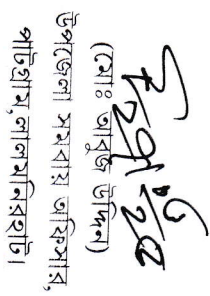 (মোঃ আবুল উদ্দিন)
উপজেলা সমবায় অফিসার,
পাটগ্রাম, লালমনিরহাট।